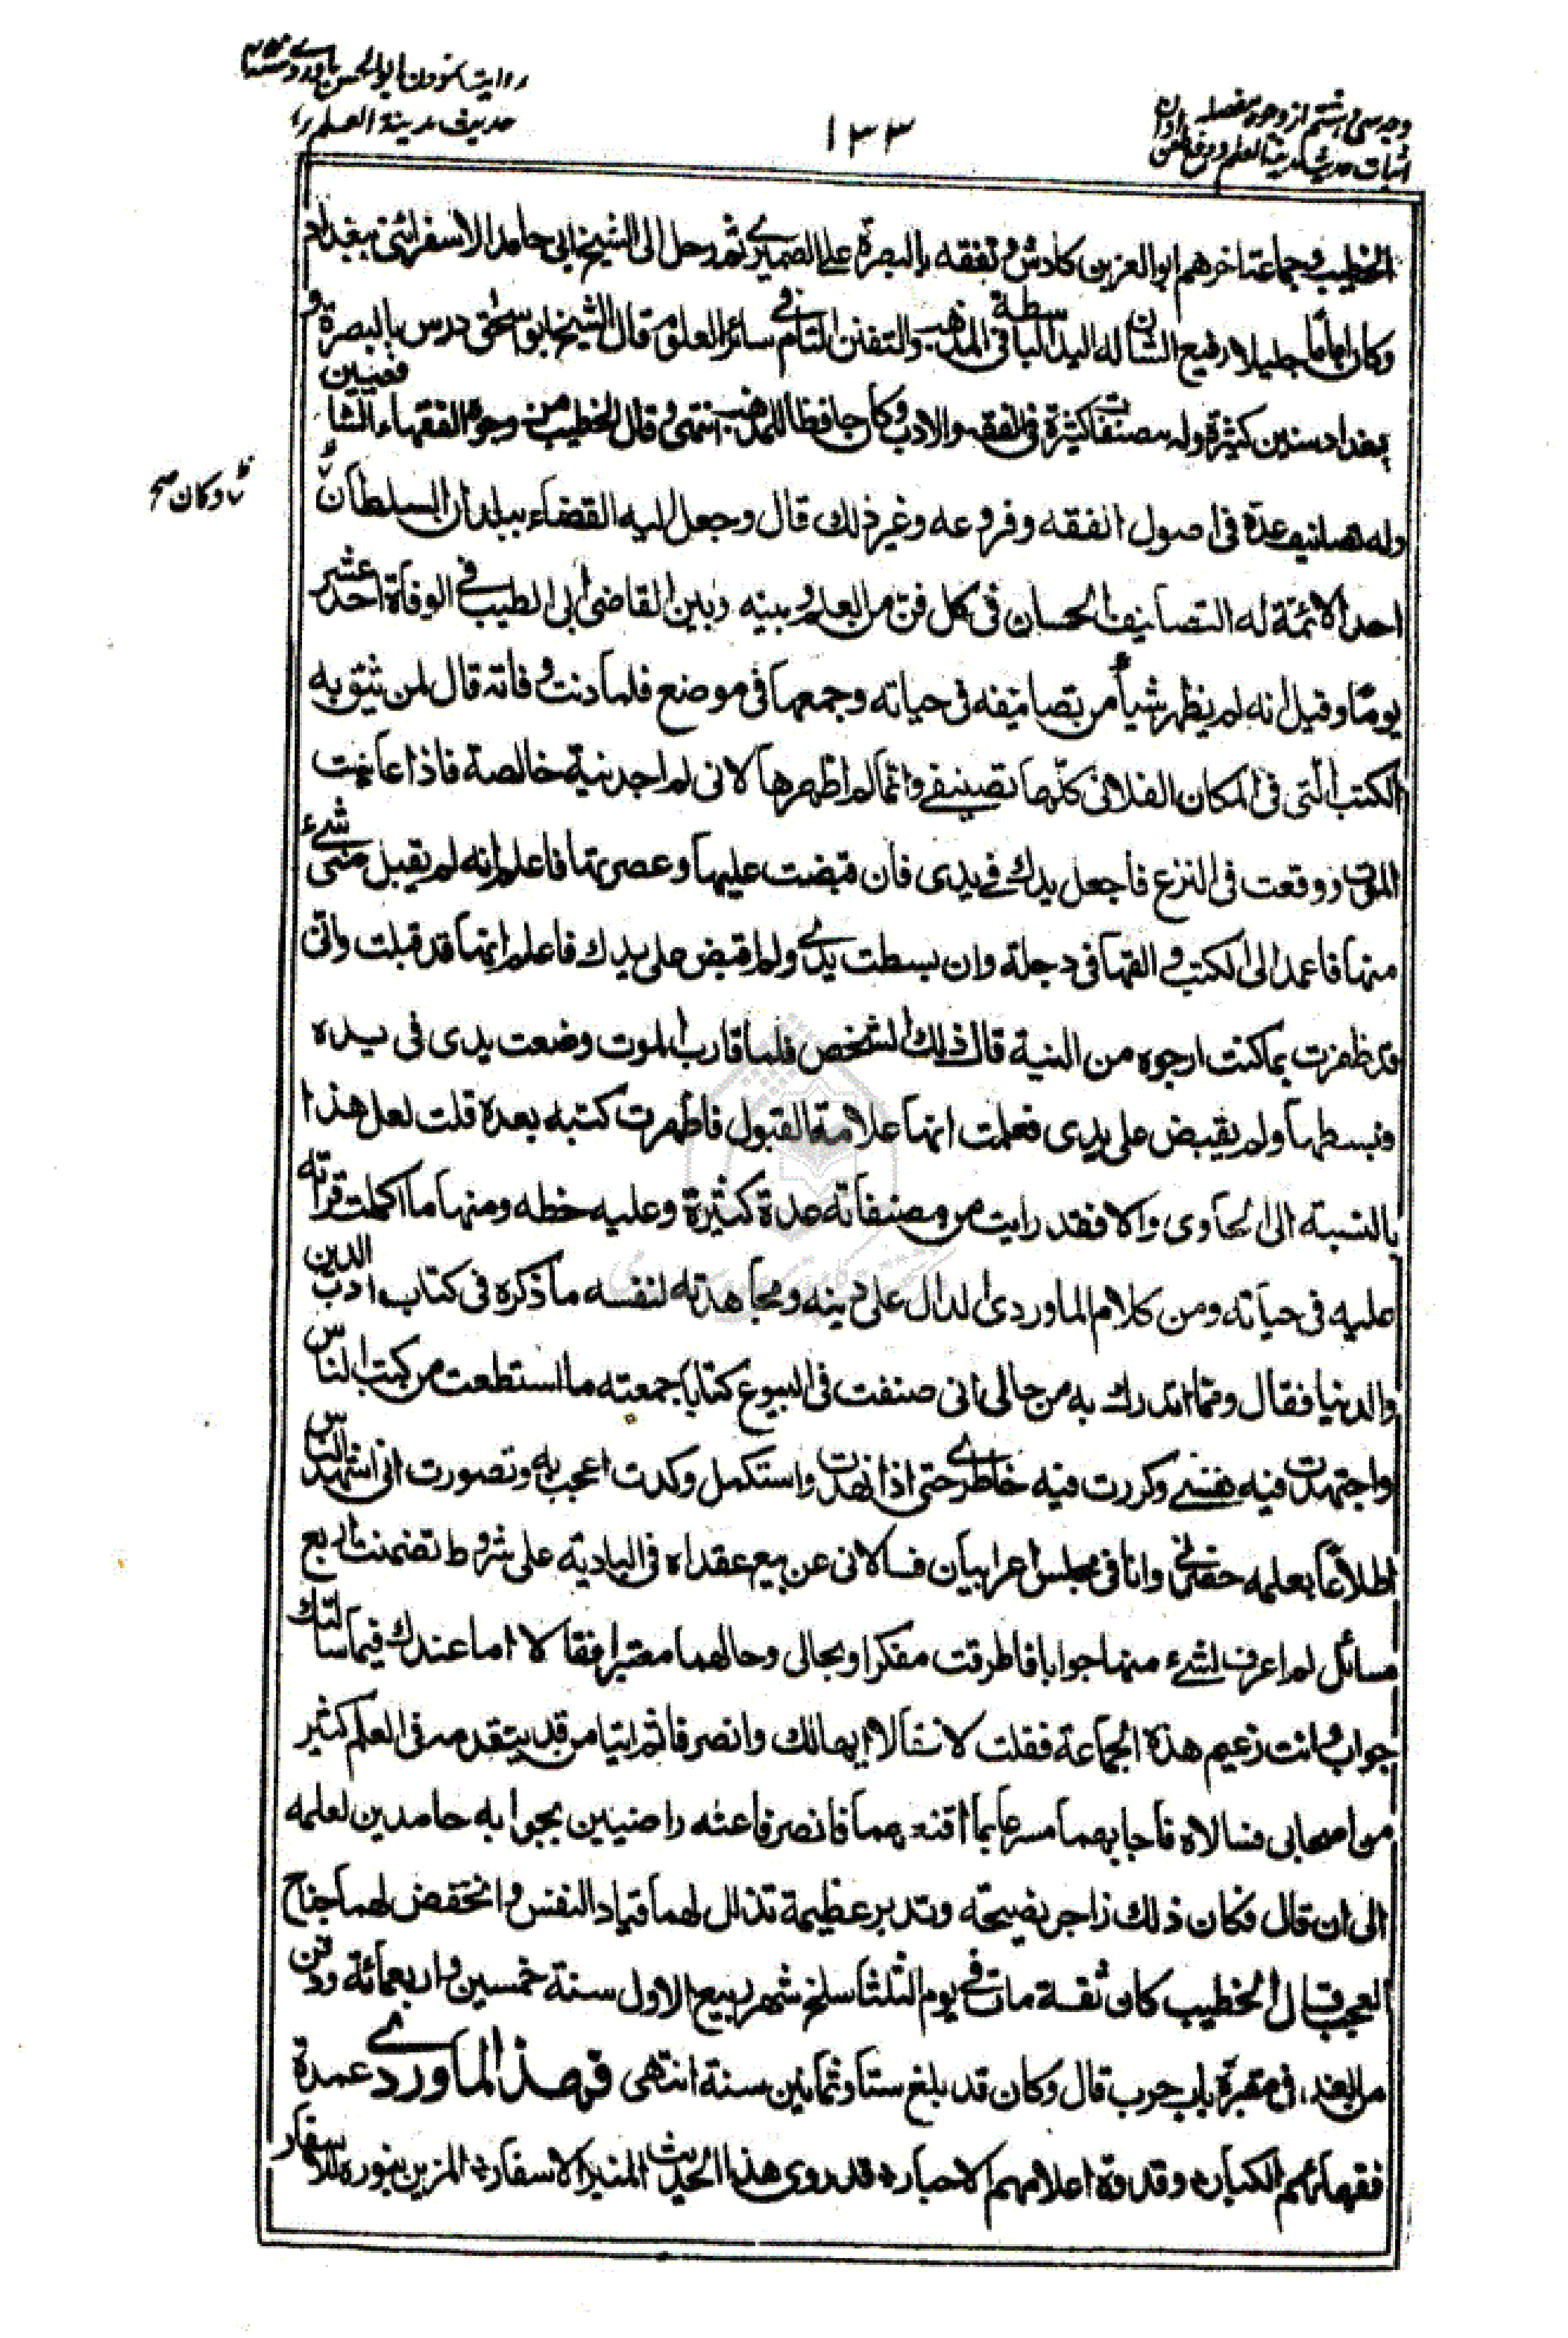 وجه سی و هشتم از وجوه مفصله
اثبات حدیث مدینة العلم
۱۳۳
روایت نمودن ابو الحسن ماوردی
حدیث مدینة العلم را
الخطیب وجماعة اخرهم ابو العز بن کادش وتفقه بالبصرة علی الصمیری ثم رحل الی الشیخ ابی حامد الاسفرائنی ببغداد
وکان اماما جلیلا رفیع الشان له الید الباسطة فی المذهب والتفنن التام فی سائر العلوم قال الشیخ ابو اسحق درس بالبصرة و
بغداد سنین کثیرة وله مصنفات کثیرة فی الفقه والادب وکان حافظا للمذهب انتهی وقال الخطیب من وجوه الفقهاء الشافعیین
وله تصانیف عدة فی اصول الفقه وفروعه وغیر ذلک قال وجعل الیه القضاء ببلدان السلطان
وکان صح
احد الائمة له التصانیف الحسان فی کل فن من العلم وبینه وبین القاضی ابی الطیب فی الوفاة احد عشر
یوما وقیل انه لم یظهر شیأ من تصانیفه فی حیاته وجمعها فی موضع فلما دنت وفاته قال لمن یثق به
الکتب التی فی المکان الفلانی کلها تصنیفی وانما لم اظهرها لانی لم اجد نیة خالصة فاذا عاینت
الموت ووقعت فی النزع فاجعل یدک فی یدی فان قبضت علیها وعصرتها فاعلم انه لم یقبل منی شیء
منها فاعمد الی الکتب و القها فی دجلة وان بسطت یدی ولم اقبض علی یدک فاعلم انها قد قبلت وانی
قد ظفرت بما کنت ارجوه من النیة قال ذلک الشخص فلما قارب الموت وضعت یدی فی یده
فبسطها ولم یقبض علی یدی فعلمت انها علامة القبول فاظهرت کتبه بعده قلت لعل هذا
بالنسبة الی الحاوی والا فقد رایت من مصنفاته عدة کثیرة وعلیه خطه ومنها ما اکملت قراته
علیه فی حیاته ومن کلام الماوردی الدال علی دینه ومجاهدته لنفسه ما ذکره فی کتاب ادب الدین
والدنیا فقال ومما انذرک به من حالی انی صنفت فی البیوع کتابا جمعته ما استطعت من کتب الناس
واجتهدت فیه نفسی وکررت فیه خاطری حتی اذا تهذب واستکمل وکدت اعجب به وتصورت انی اشد الناس
اطلاعا بعلمه حضرنی وانا فی مجلس اعرابیان فسالانی عن بیع عقداه فی البادیة علی شروط تضمنت اربع
مسائل لم اعرف لشیء منها جوابا فاطرقت مفکرا وبحالی وحالهما معتبرا فقالا اما عندک فیما سالتک
جواب وانت زعیم هذه الجماعة فقلت لا فقالا ایها لک وانصرفا ثم اتیا من قد یتقدمه فی العلم کثیر
من اصحابی فسالاه فاجابهما مسرعا بما اقنعهما فانصرفا عنه راضیین بجوابه حامدین لعلمه
الی ان قال فکان ذلک زاجر نصیحة وتدبر عظیمة تذلل لهما قیاد النفس وانخفض لهما جناح
العجب قال الخطیب کان ثقة مات فی یوم الثلثا سلخ شهر ربیع الاول سنة خمسین واربعمائة ودفن
من الغد فی مقبرة باب حرب قال وکان قد بلغ ستا وثمانین سنة انتهی فهذا الماوردی عمدة
فقهائهم الکبار وقدوة اعلامهم الاحبار قد روی هذا الحدیث المنیر الاسفار المزین بنوره للاسفار